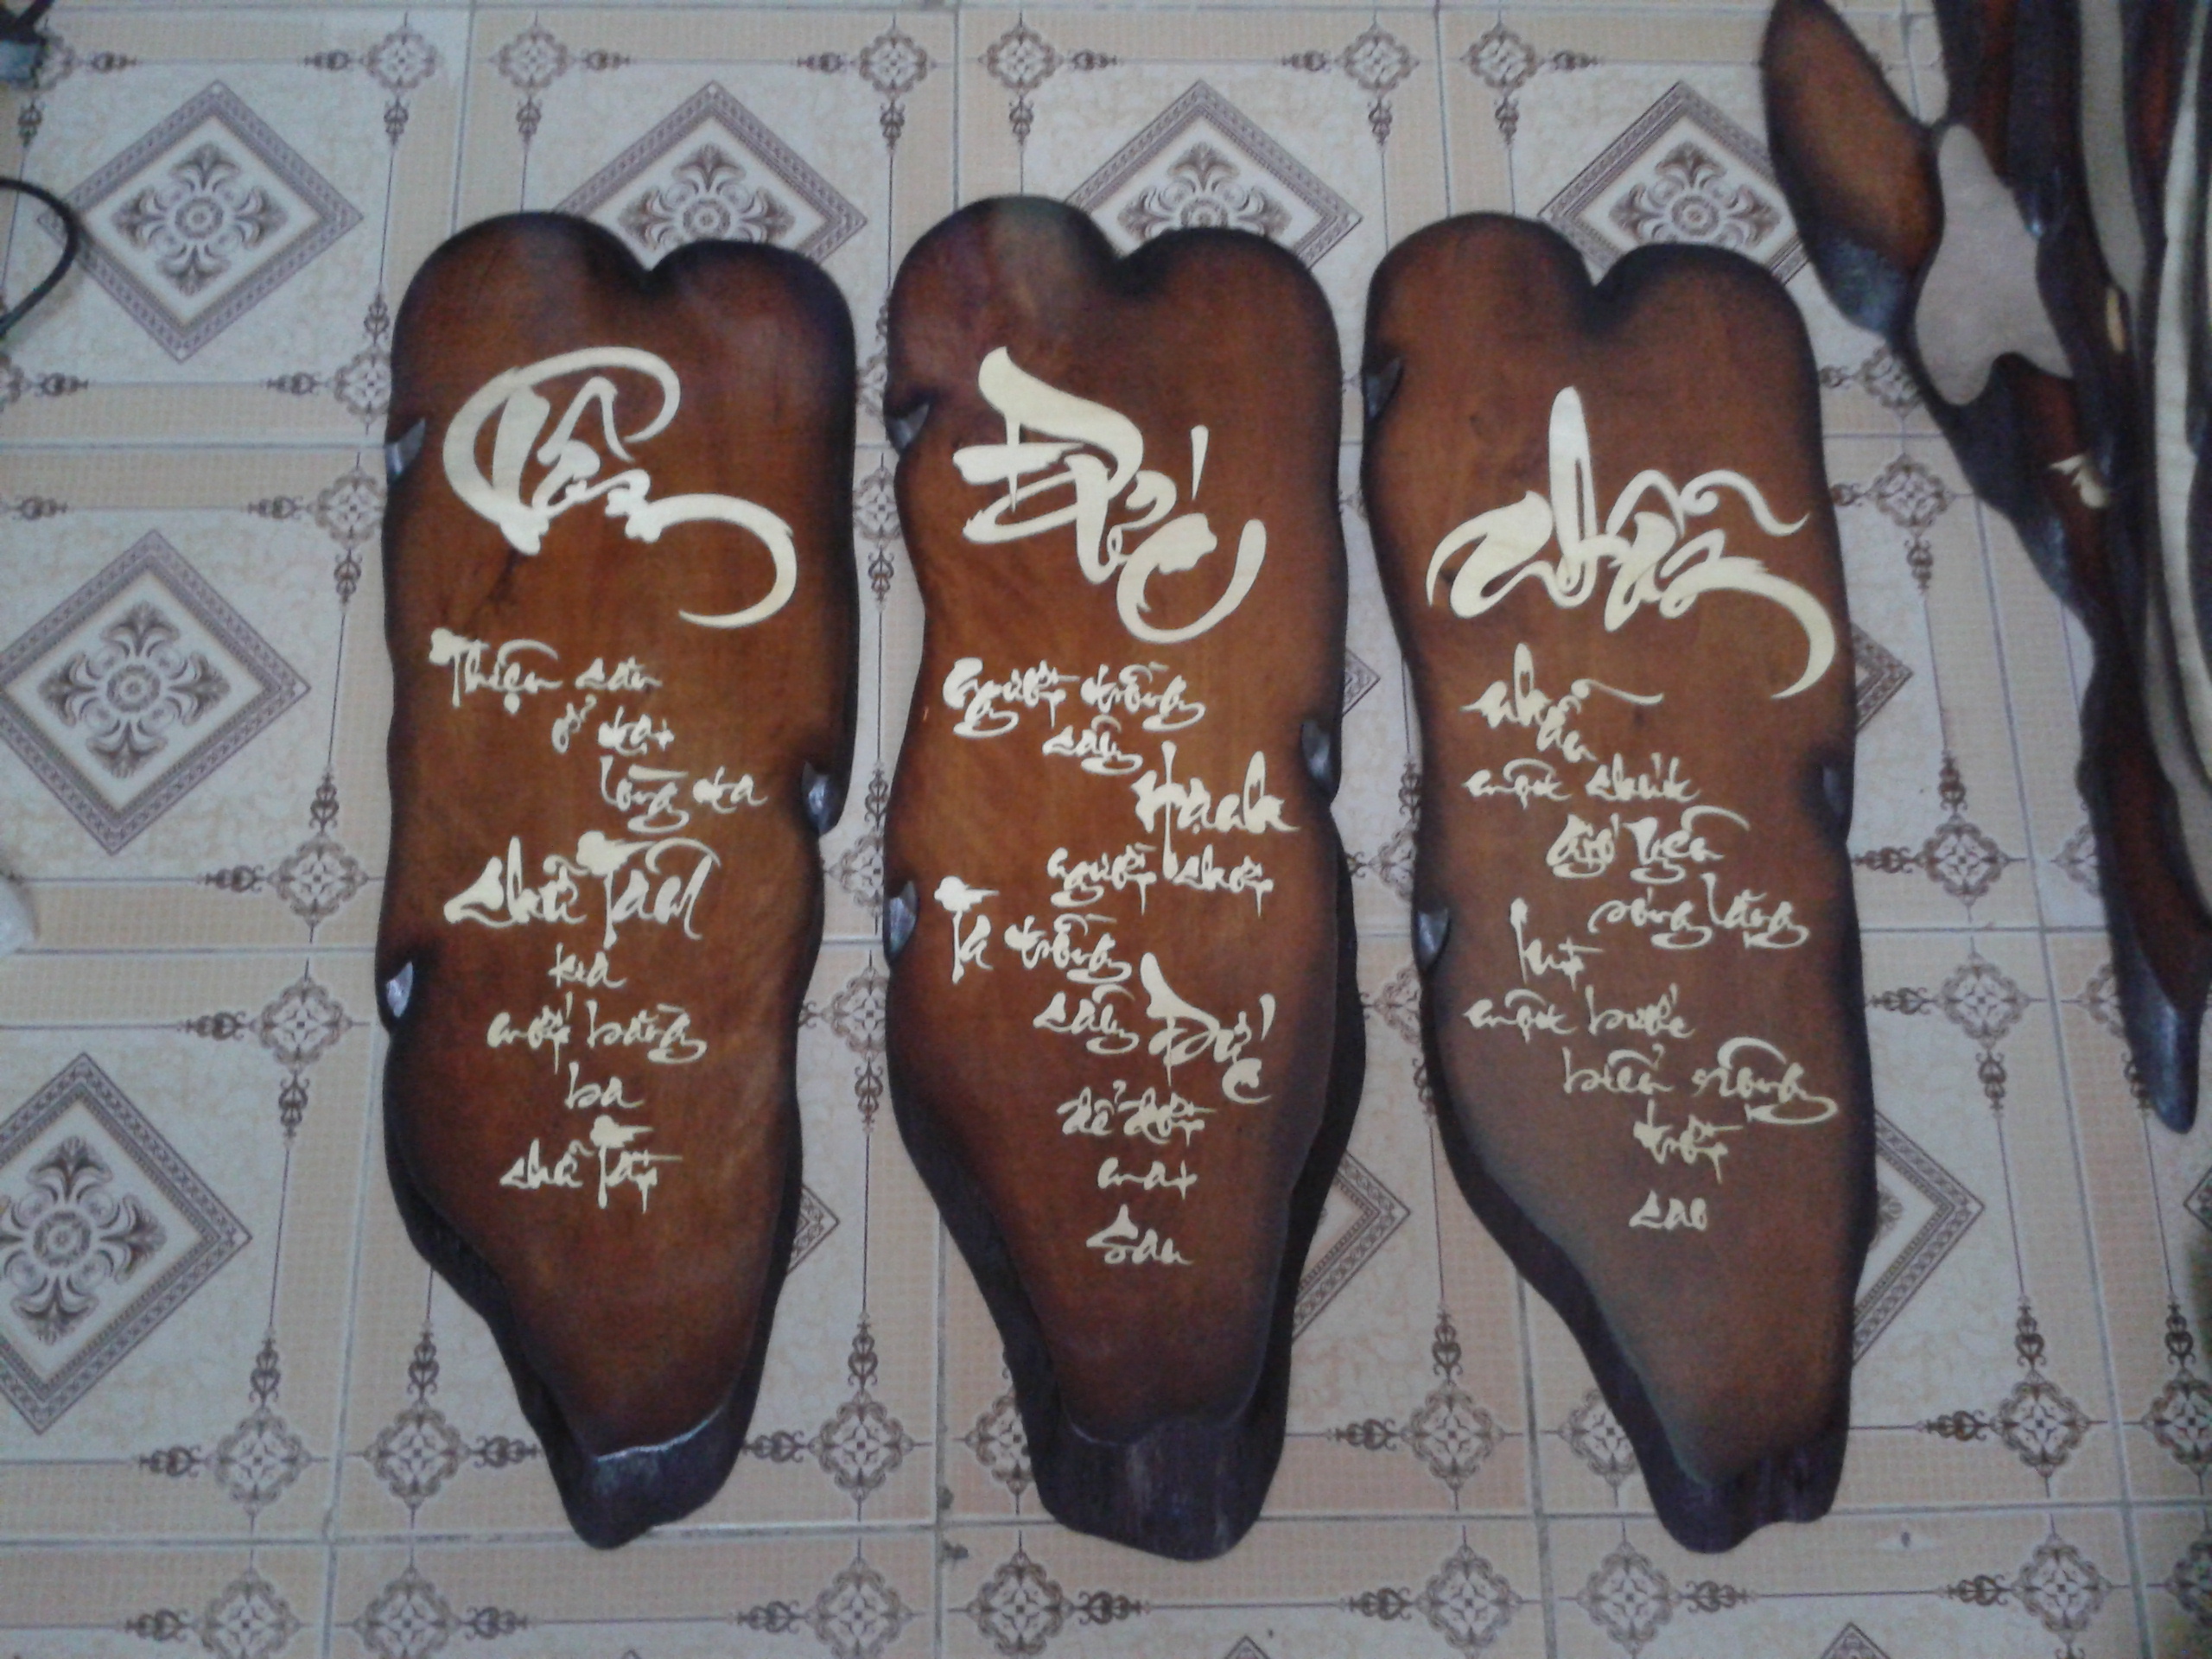 Tâm
Thiện căn
ở tại
lòng ta
Chữ Tâm
kia
mới bằng
ba
chữ Tài
Đức
Người trồng
cây
Hạnh
người chơi
Ta trồng
cây Đức
để đời
mai
Sau
Nhẫn
Nhẫn
một chút
gió yên
sóng lặng
lùi
một bước
biển rộng
trời
cao